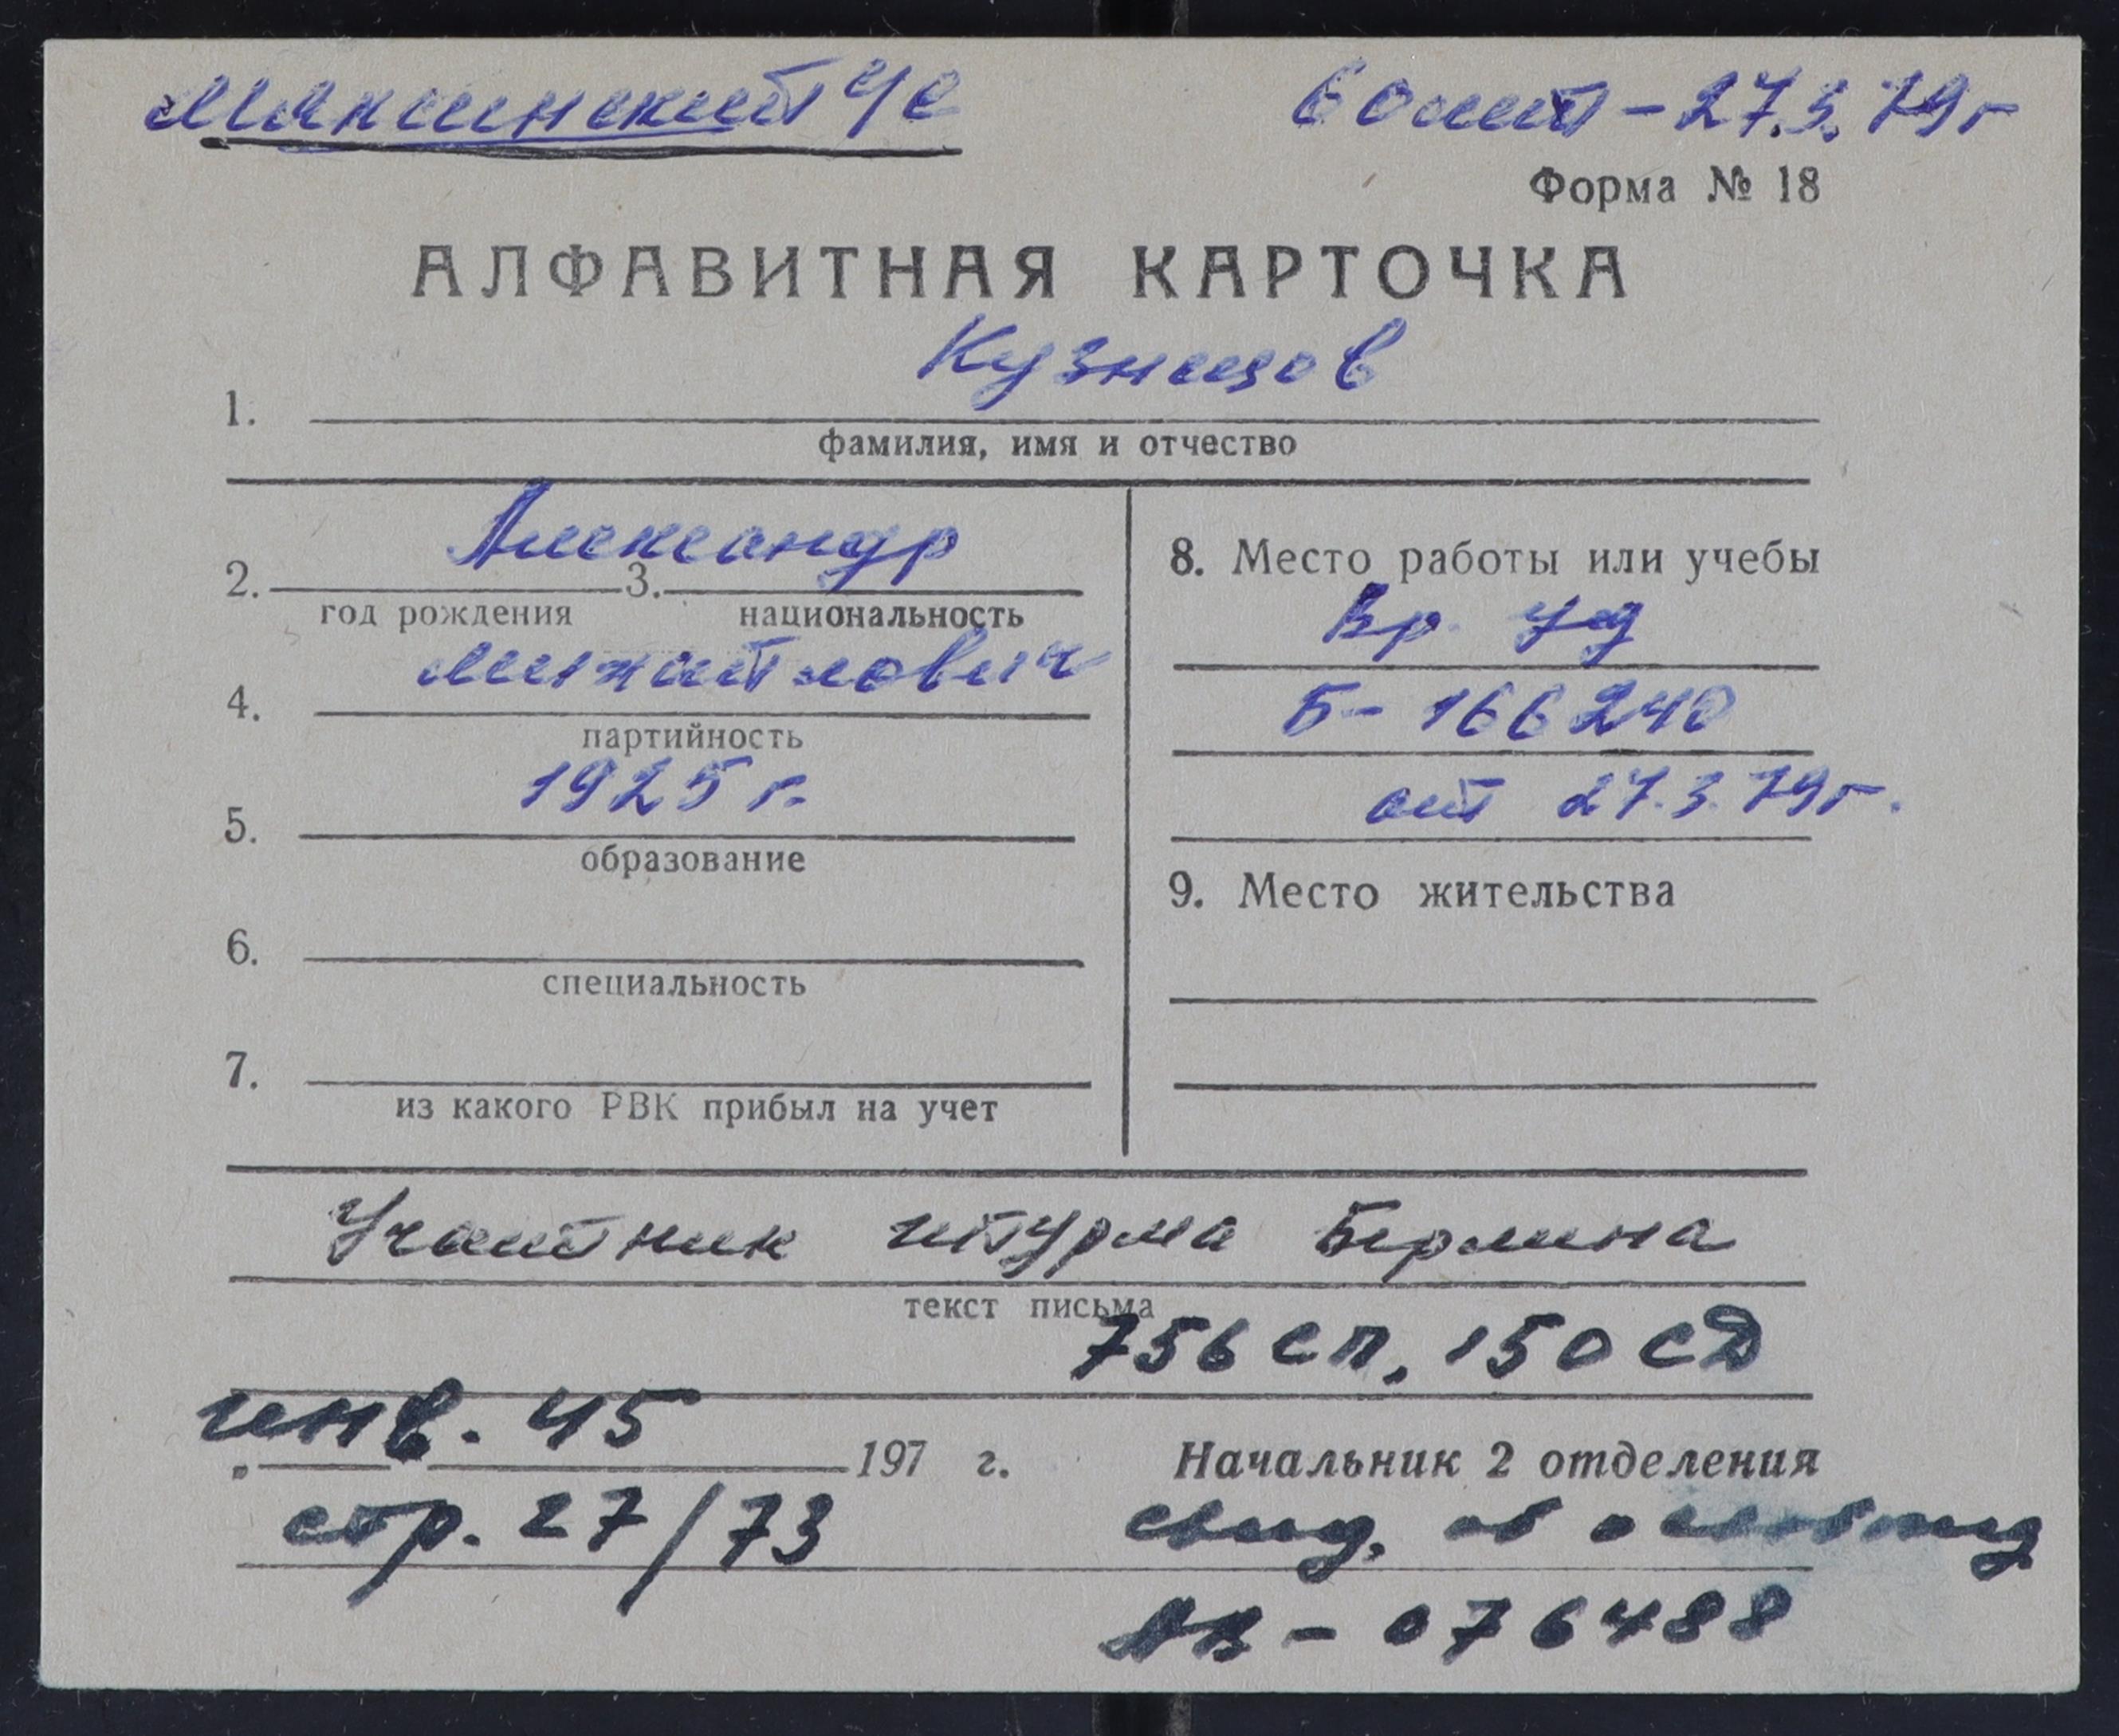 60 лет - 27.3.79г
Форма № 18
АЛФАВИТНАЯ КАРТОЧКА
Кузнецов
1.
фамилия, имя и отчество
Александр
2. 3.
год рождения национальность
4.
партийность
1925 г.
5.
образование
6.
специальность
7.
из какого РВК прибыл на учет
8. Место работы или учебы
Вр уд
Б - 166240
от 27.3.79г.
9. Место жительства
Участник штурма Берлина
текст письма
756 СП, 150 СД
инв. 45
197 г. Начальник 2 отделения
стр. 27/73 свид. об освобожд
АВ - 076488